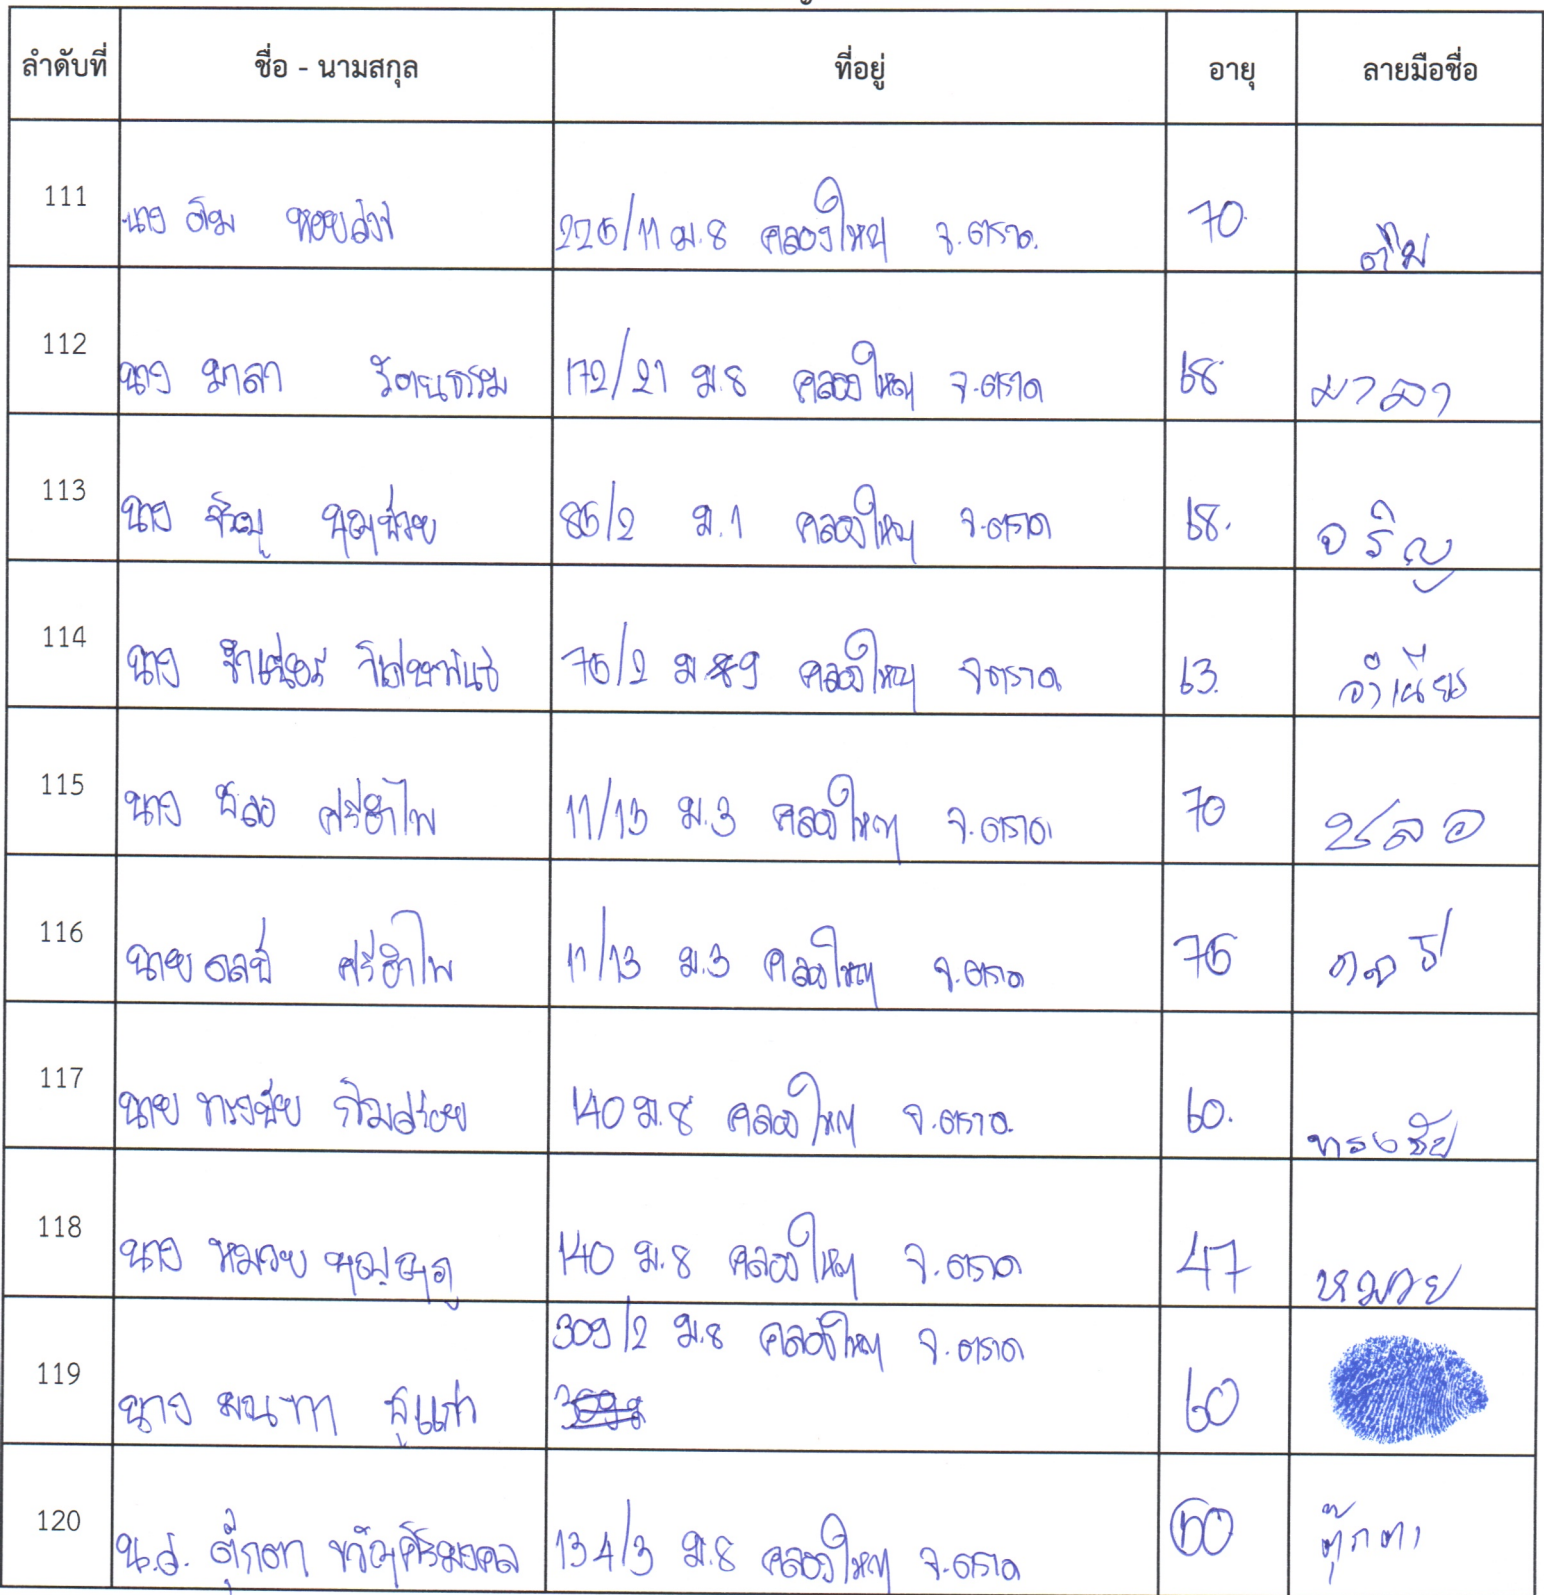 ลำดับที่ ชื่อ - นามสกุล ที่อยู่ อายุ ลายมือชื่อ
111 นาง ติ๋ม หอยสังข์ 225/11 ม.8 คลองใหญ่ จ.ตราด. 70
112 นาง มาลา วัฒนธรรม 172/21 ม.8 คลองใหญ่ จ.ตราด 68 มาลา
113 นาง บุญช่วย 85/2 ม.1 คลองใหญ่ จ.ตราด 68. จริญ
114 นาง จำเนียร วิเศษพันธ์ 75/2 ม.9 คลองใหญ่ จ.ตราด 63. จำเนียร
115 นาง ชลอ ศรีอำไพ 11/13 ม.3 คลองใหญ่ จ.ตราด 70 ชลอ
116 นาย ศรีอำไพ 11/13 ม.3 คลองใหญ่ จ.ตราด 75
117 นาย ทรงชัย 140 ม.8 คลองใหญ่ จ.ตราด. 60. ทรงชัย
118 นาง หมวย 140 ม.8 คลองใหญ่ จ.ตราด 47 หมวย
309/2 ม.8 คลองใหญ่ จ.ตราด
119 นาง มนฑา ชูแก้ว 60
120 น.ส. ตุ๊กตา ขวัญศิริมงคล 134/3 ม.8 คลองใหญ่ จ.ตราด 50 ตุ๊กตา